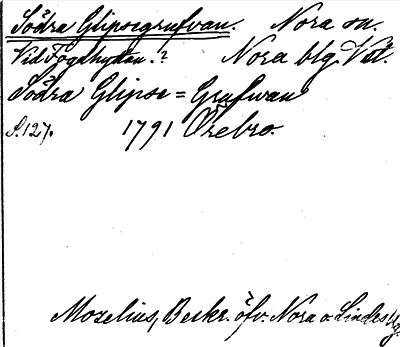 Södra Glipsegrufvan. Nora sn.
Vid Fogdhyttan.? Nora blg Vstl.
Södra Glipse = Grufwan
S. 127. 1791 Örebro.
Mozelius, Beskr. öfv. Nora o. Lindes